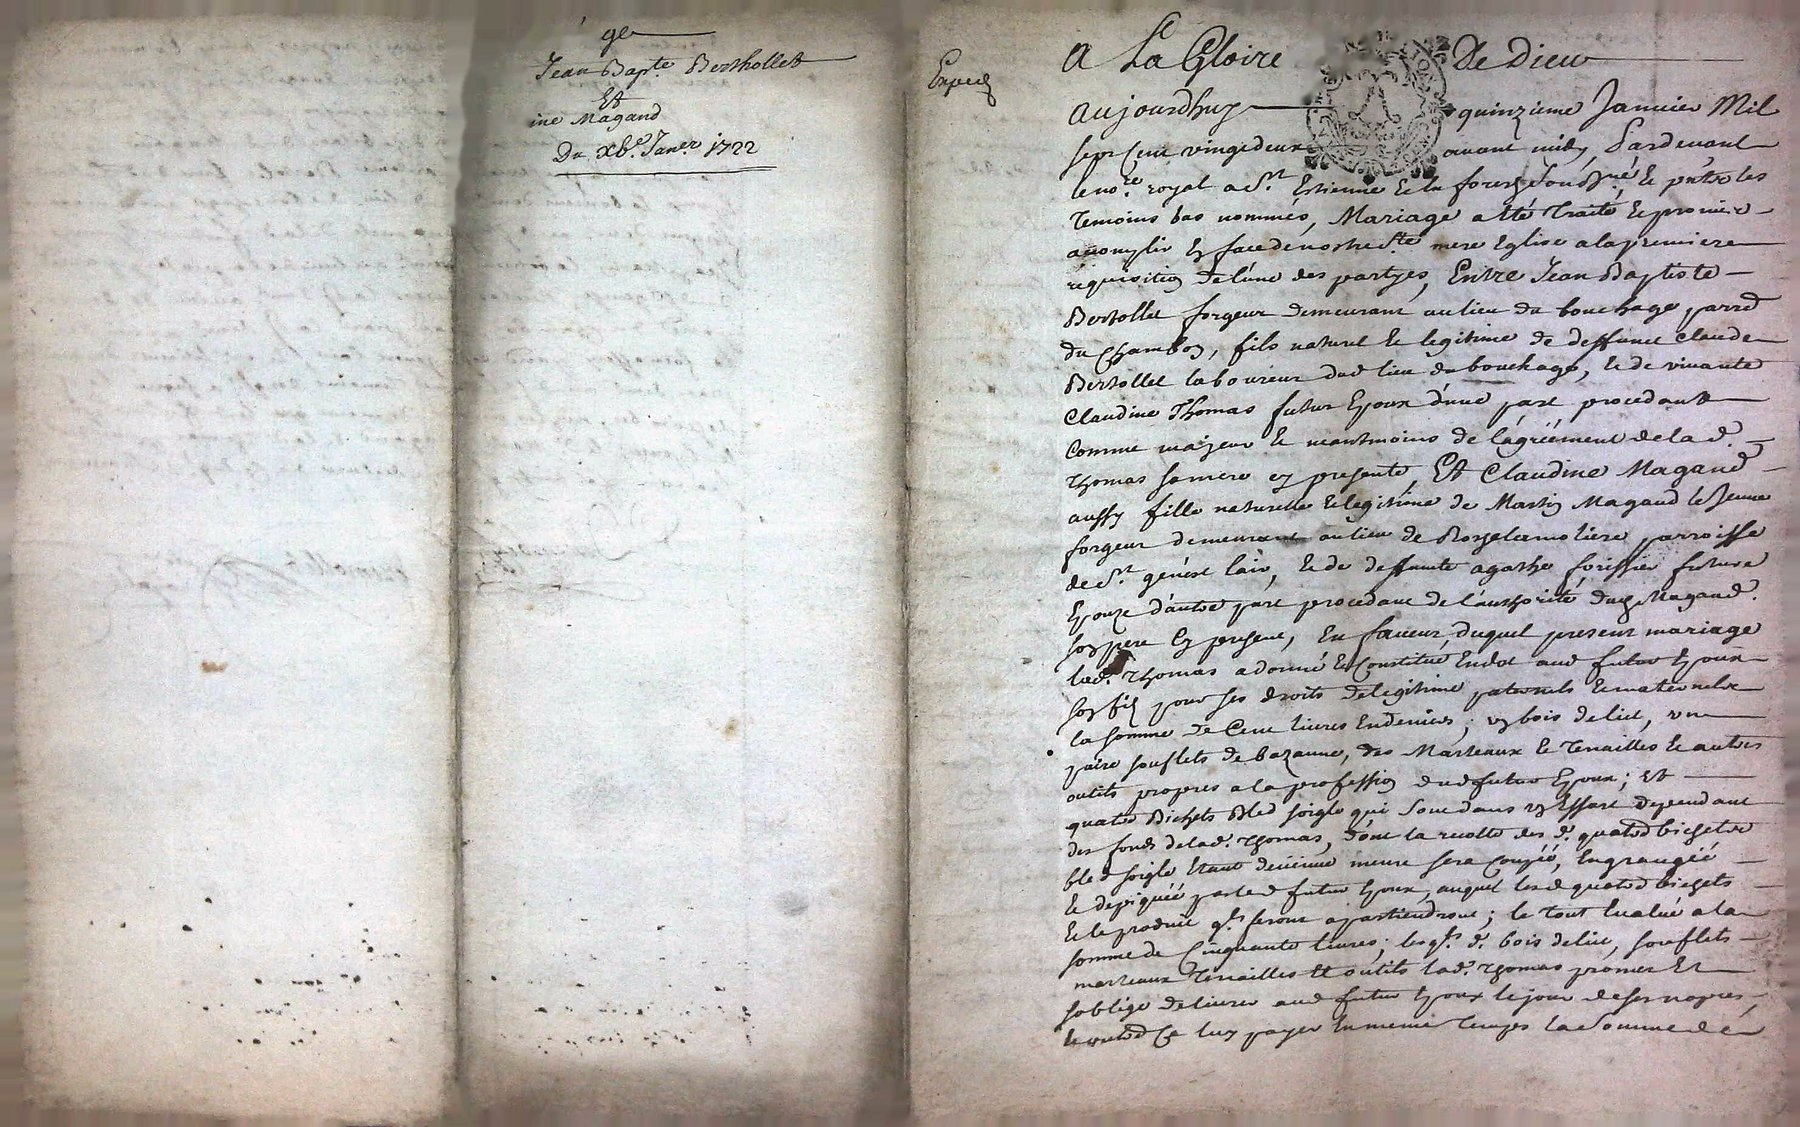 ge
Jean Bapte. Berthollet
Et
ine Magand
Du xve. Janer. 1722
Exped
A La Gloire De Dieu
aujourdhuy quinzieme Janvier Mil
sept Cent vingt deux avant midy Pardevant
le nore. royal a St. Estienne et en forest soussigné, et pntes les
temoins bas nommés, Mariage a été traité et promis
acomplir en face de nostre ste mere Eglise a la premiere
requisition de l'une des partyes, Entre Jean Baptiste
Bertollet forgeur demeurant au lieu du bouchage parred
du Chambon, fils naturel et legitime de deffunct Claude
Bertollet laboureur dud lieu du bouchage, et de vivante
Claudine Thomas futur Epoux d'une part procedant
Comme majeur et neantmoins de l'agréement de la d.
Thomas sa mere cy presente, Et Claudine Magand
aussy fille naturelle et legitime de Martin Magand le Jeune
forgeur demeurant au lieu de parroisse
de St. genest lair, et de deffunte agathe forissier future
Epouze d'autre part procedant de l'authorité dud Magand
son pere cy present, En faveur duquel present mariage
lad. Thomas a donné et Constitué En dot aud futur Epoux
son fils pour ses droits de legitime paternels et maternels
la somme de Cent livres En deniers, un bois de lict, une
paire souflets de bazanne, des Marteaux et Tenailles et autres
outils propres a la profession dud futur Epoux; Et
quatre Bichets Bled soigle qui sont dans un Essart dependant
des fonds de lad. Thomas, dont la recolte des d. quatre bichets
bled soigle étant devenue meure sera Coupée, Engrangée
et depiquée par led futur Epoux, auquel les d quatre bichets
et le produit qls. feront apartiendront; le tout Evalué a la
somme de Cinquante livres; lesqls. d. bois de lict, souflets
marteaux Tenailles et outils lad. Thomas promet Et
s'oblige de livrer aud futur Epoux le jour de ses nopces
et outre Ce luy payer En meme temps la Somme de